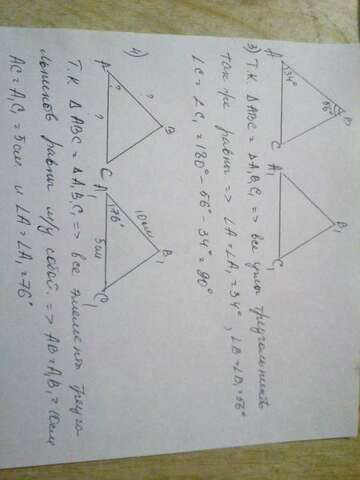 3)
A
34°
56°
B
C
A₁
B₁
C₁
Т.К ΔABC = ΔA₁B₁C₁ => все углы треугольников
так же равны => ∠A = ∠A₁ = 34°, ∠B = ∠B₁ = 56°
∠C = ∠C₁ = 180° - 56° - 34° = 90°
4)
A
?
?
?
B
C
A₁
76°
10см
5см
B₁
C₁
Т.К ΔABC = ΔA₁B₁C₁ => все элементы треуго-
льников равны м/у собой. => AB = A₁B₁ = 10см
AC = A₁C₁ = 5см и ∠A = ∠A₁ = 76°